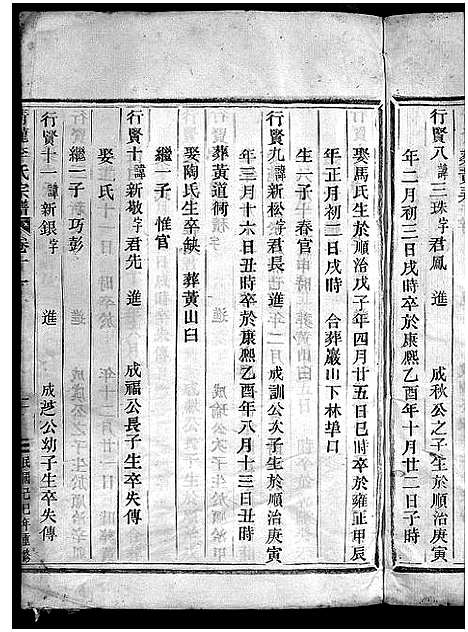 行賢八諱三珠字君鳳 進 成秋公之子生於順治庚寅
年二月初三日戌時卒於康熙乙酉年十月廿二日子時
娶馬氏生於順治戊子年四月廿五日巳時卒於雍正甲辰
年正月初二日戌時 合葬巖山下林埠口
生六子 春官
行賢九諱新松字君長 進 成訓公次子生於順治庚寅
年三月十六日丑時卒於康熙乙酉年八月十三日丑時
葬黃道衕
娶陶氏生卒缺 葬黃山臼
繼一子 惟官
行賢十諱新敬字君先 進 成福公長子生卒失傳
娶 氏
繼一子 巧彭
行賢十一諱新銀字 進 成 公幼子生卒失傳
氏宗譜 卷 民國己巳年重修